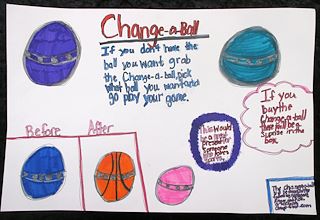 Change-a-Ball
If you don't have the
ball you want grab
the Change-a-ball, pick
what ball you want and
go play your game.
If you
buy the
Change-a-ball
there will be a
suprise in the
box.
Before
After
This Would
be a great
present for
someone
who loves
sports.
The Change-a-ball